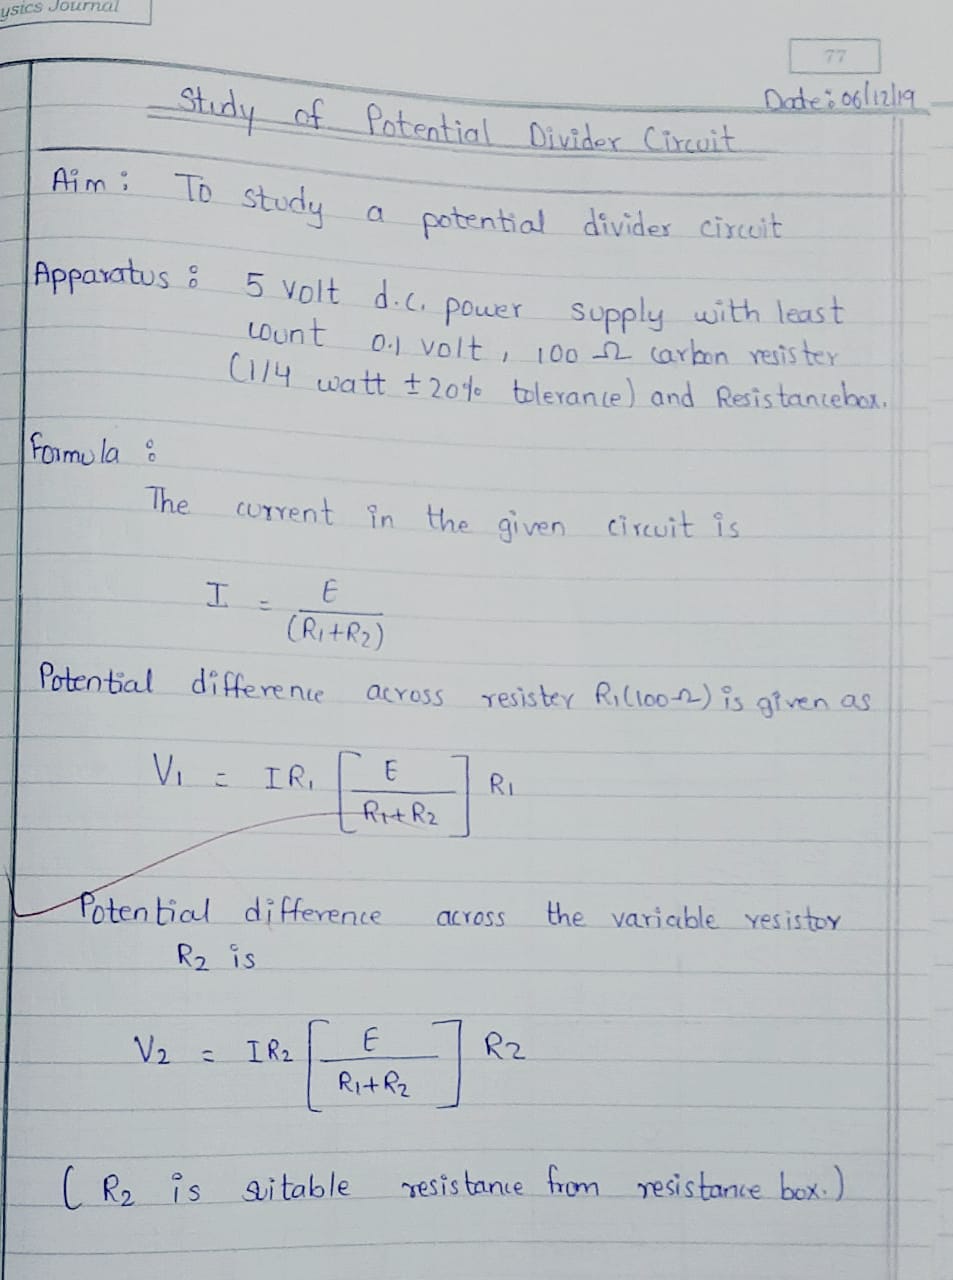 ysics Journal
77
Date: 06/12/19
Study of Potential Divider Circuit
Aim: To study a potential divider circuit
Apparatus: 5 volt d.c. power supply with least
count 0.1 volt, 100 Ω carbon resister
(1/4 watt ± 20% tolerance) and Resistancebox.
Formula:
The current in the given circuit is
I = E
(R1+R2)
Potential difference across resister R1(100Ω) is given as
V1 = IR1 [E / R1+R2] R1
Potential difference across the variable resistor
R2 is
V2 = IR2 [E / R1+R2] R2
( R2 is suitable resistance from resistance box.)